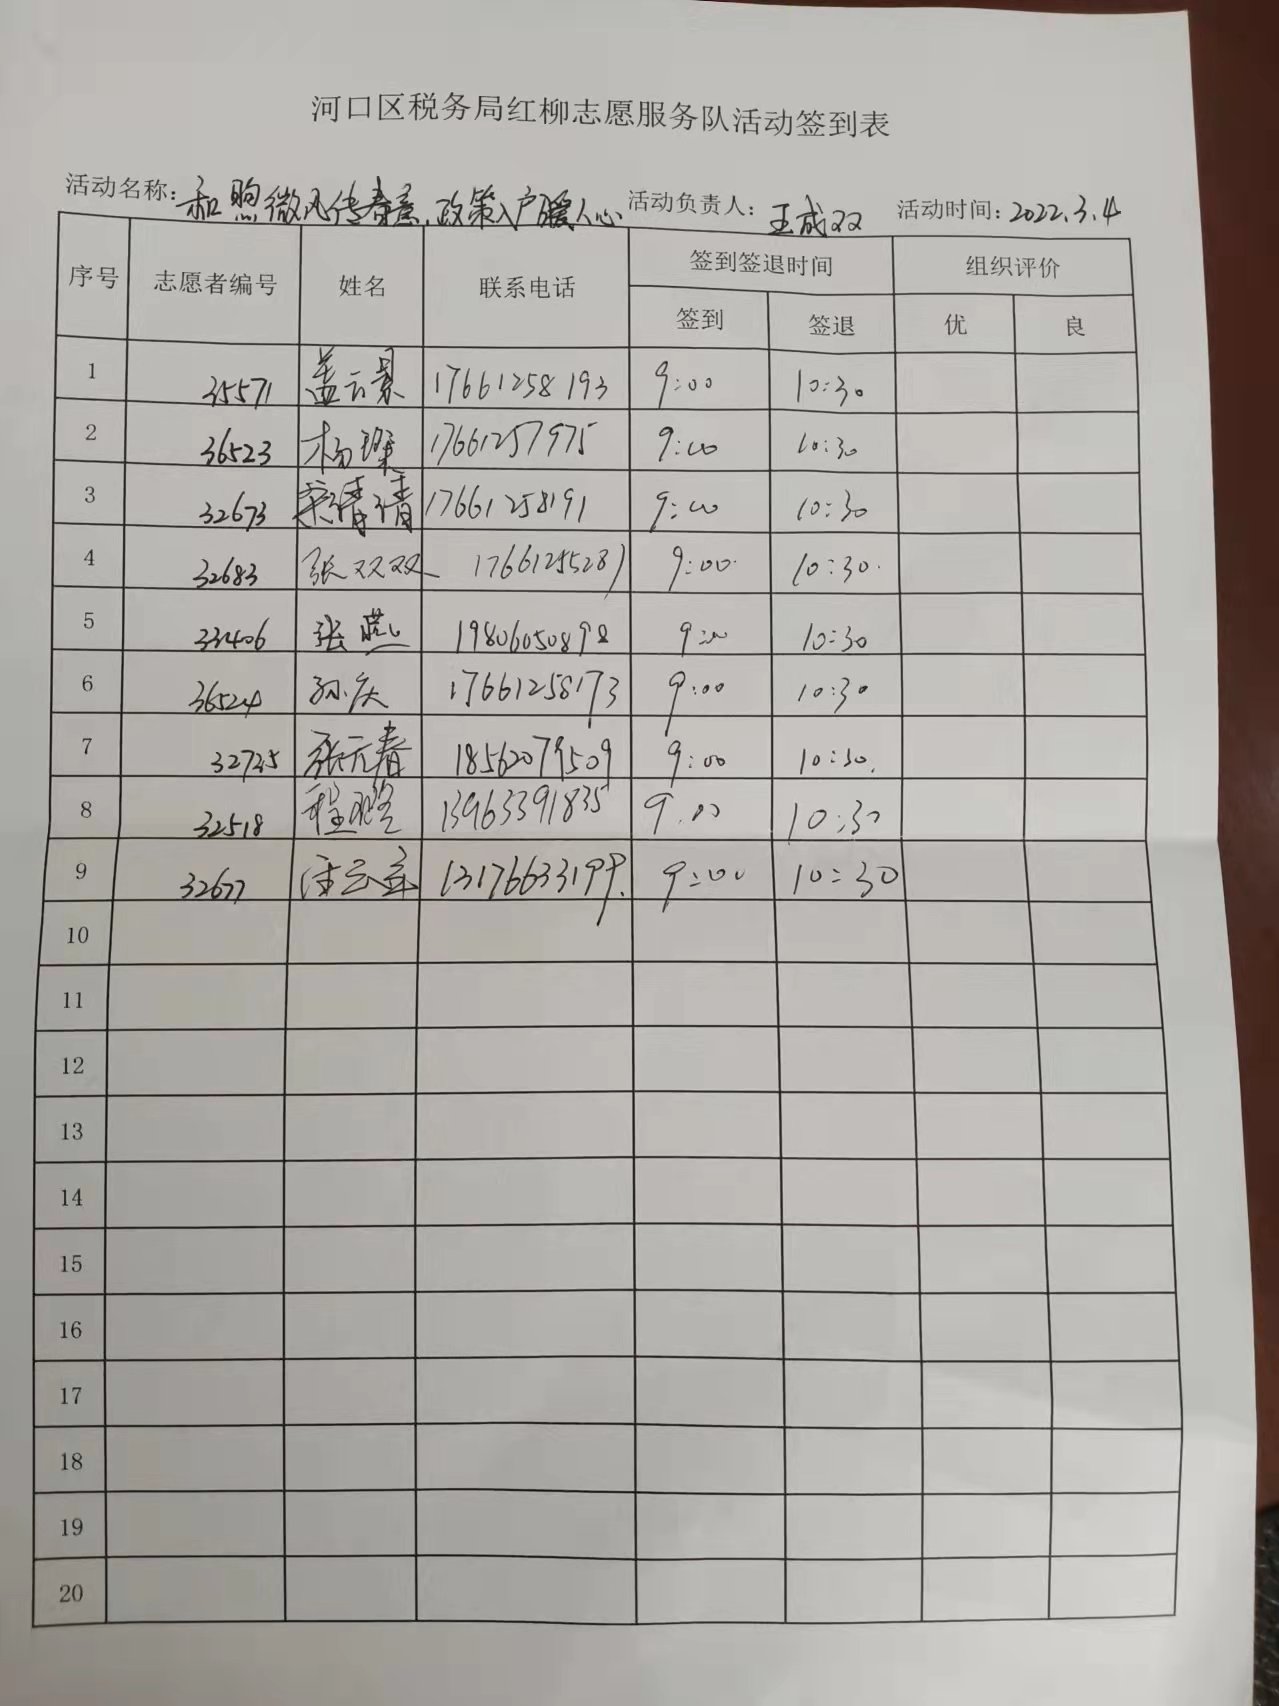 河口区税务局红柳志愿服务队活动签到表
活动名称: 和煦微风传春意,政策入户暖人心 活动负责人: 王成双 活动时间: 2022.3.4
序号 志愿者编号 姓名 联系电话 签到签退时间 组织评价
签到 签退 优 良
1 35571 盖云景 17661258193 9:00 10:30
2 36523 杨璨 17661257975 9:00 10:30
3 32673 倩倩 17661258191 9:00 10:30
4 32683 张双双 17661255281 9:00 10:30
5 33406 张燕 19806050898 9:00 10:30
6 36524 孙庆 17661258173 9:00 10:30
7 32725 张元春 18562079509 9:00 10:30
8 32518 程 13963391835 9:00 10:30
9 32677 13176633199 9:00 10:30
10
11
12
13
14
15
16
17
18
19
20